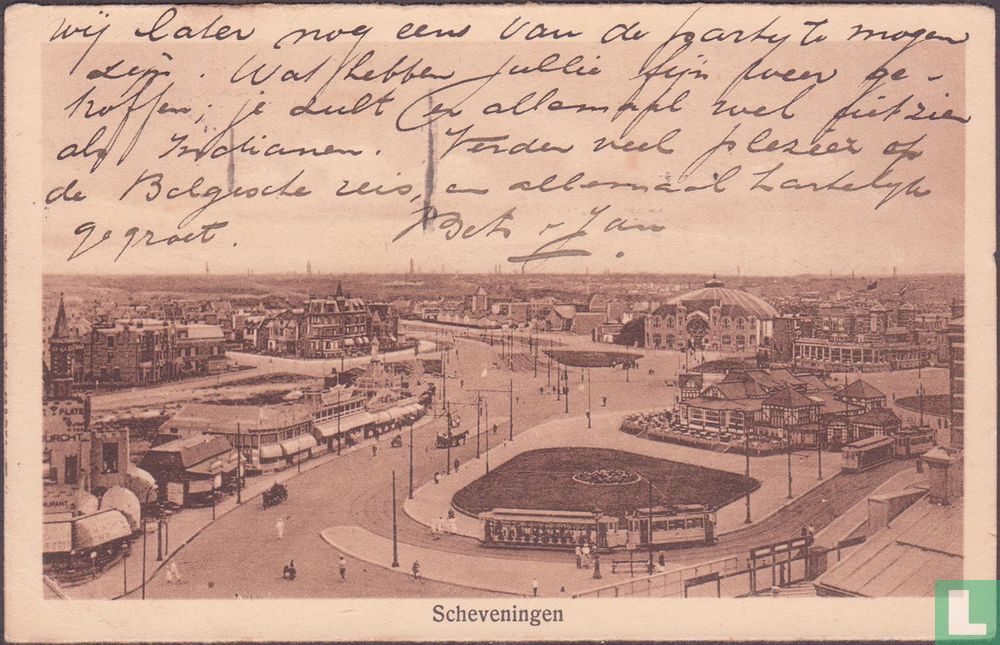 wij later nog eens van de partij te mogen
zijn. Wat hebben jullie fijn weer ge-
troffen; je zult er allemaal wel uitzien
als Indianen. Verder veel plezier op
de Belgische reis, en allemaal hartelijk
gegroet. Bets & Jan
PLATS
BURCHT
Scheveningen
L